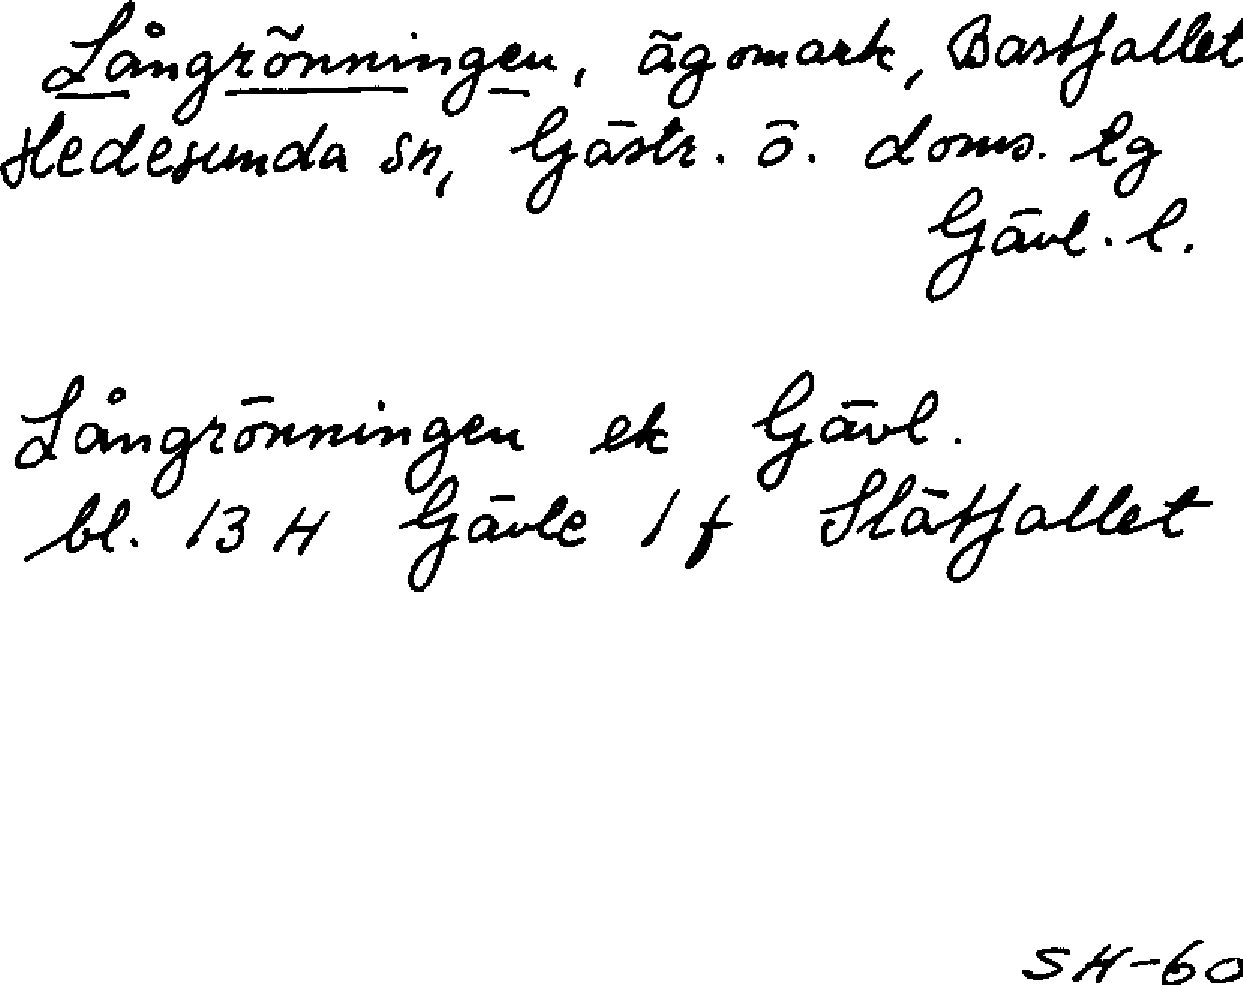 Långrönningen, ägomark, Bastfallet
Hedesunda sn, Gästr. ö. doms. lg
Gävl. l.
Långrönningen ek Gävl.
bl. 13 H Gävle 1 f Slätfallet
SH-60